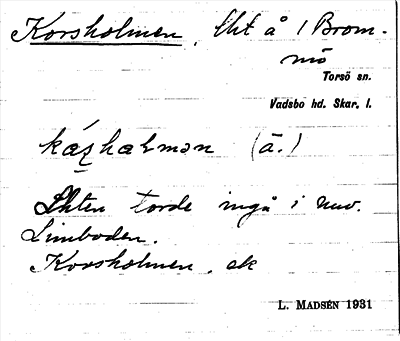 Korsholmen, Uht å / Brom-
mö
Torsö sn.
Vadsbo hd. Skar. l.
kå̱rhalmən (ä.)
Uhten torde ingå i nuv.
Limboden.
Korsholmen, ek
L. MADSÉN 1931